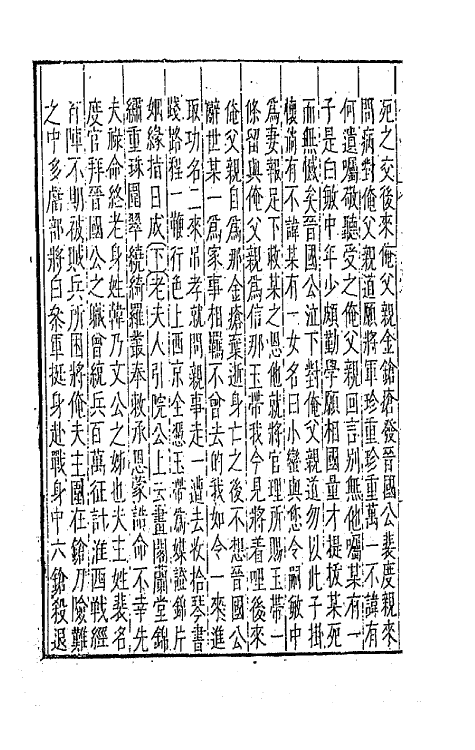 死之交後來俺父親金鎗瘡發晉國公裴度親來
問病對俺父親道願將軍珍重珍重萬一不諱有
何遺囑敬聽受之俺父親回言別無他囑某有一
子是白敏中年少頗勤學願相國量才提拔某死
而無憾矣晉國公泣下對俺父親道勿以此子掛
懷倘有不諱某有一女名曰小蠻與您令嗣敏中
爲妻報足下救某之恩他就將官理所賜玉帶一
條留與俺父親爲信那玉帶我今見將着哩後來
俺父親自爲那金瘡棄逝身亡之後不想晉國公
辭世某一爲家事相羈不曾去的我如今一來進
取功名二來吊孝就問親事走一遭去收拾琴書
踐路程一鞭行色上西京全憑玉帶爲媒證錦片
姻緣指日成下老夫人引院公上云畫閣蘭堂錦
繡重珠圍翠繞綺羅叢奉敕承恩蒙誥命不幸先
夫祿命終老身姓韓乃文公之姊也夫主姓裴名
度官拜晉國公之職曾統兵百萬征討淮西戰經
陣不期被賊兵所困將俺夫主圍在鎗刀險難
之中多虧部將白參軍挺身赴戰身中六鎗殺退